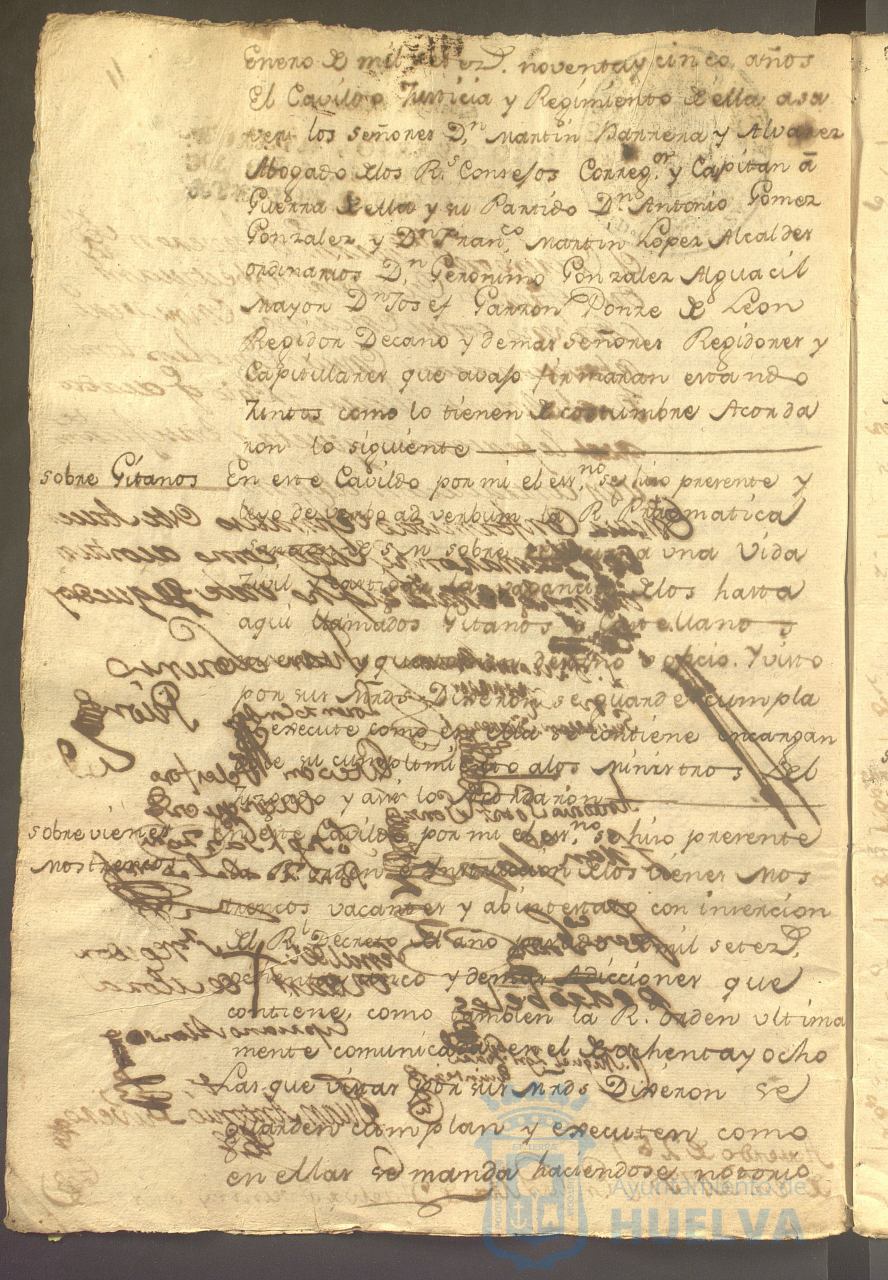 11
Enero de mil setezs. noventa y cinco años
El Cavildo Justicia y Regimiento de ella asa
ver los señores Dn. Martin Barrera y Alvarez
Abogado de los Rs. Consejos Corregor. y Capitan a
Guerra de ella y su Partido Dn. Antonio Gomez
Gonzalez y Dn Franco. Martin Lopez Alcaldes
ordinarios Dn. Geronimo Gonzalez Alguacil
Mayor Dn Josef Garron Ponze de Leon
Regidor Decano y demas señores Regidores y
Capitulares que avajo firmaran estando
Juntos como lo tienen de costumbre Acorda
ron lo siguiente
sobre Gitanos En este Cavildo por mi el essno. se hizo presente y
leyo de verbo ad verbum la Rl. Pragmatica
de S M sobre a una vida
Civil y los hasta
aqui llamados Gitanos o Castellanos
y oficio. Y visto
por sus Mrds. Dixeron se guarde cumpla
y execute como en ella se contiene encargan
dose su cumplimiento a los Ministros del
Juzgado y asi lo Acordaron
sobre vienes En este Cavildo por mi el essno. se hizo presente
Mostrencos la Rl. orden e Instruccion de los vienes Mos
trencos vacantes y abintestato con insercion
del Rl. Decreto del año pasado de mil setezs.
ochenta y cinco y demas Adicciones que
contiene, como tambien la Rl. orden ultima
mente comunicada en el de ochenta y ocho
Las que vistas por sus Mrds Dixeron se
guarden cumplan y executen como
en ellas se manda haciendose notorio
Ayuntamiento de
HUELVA